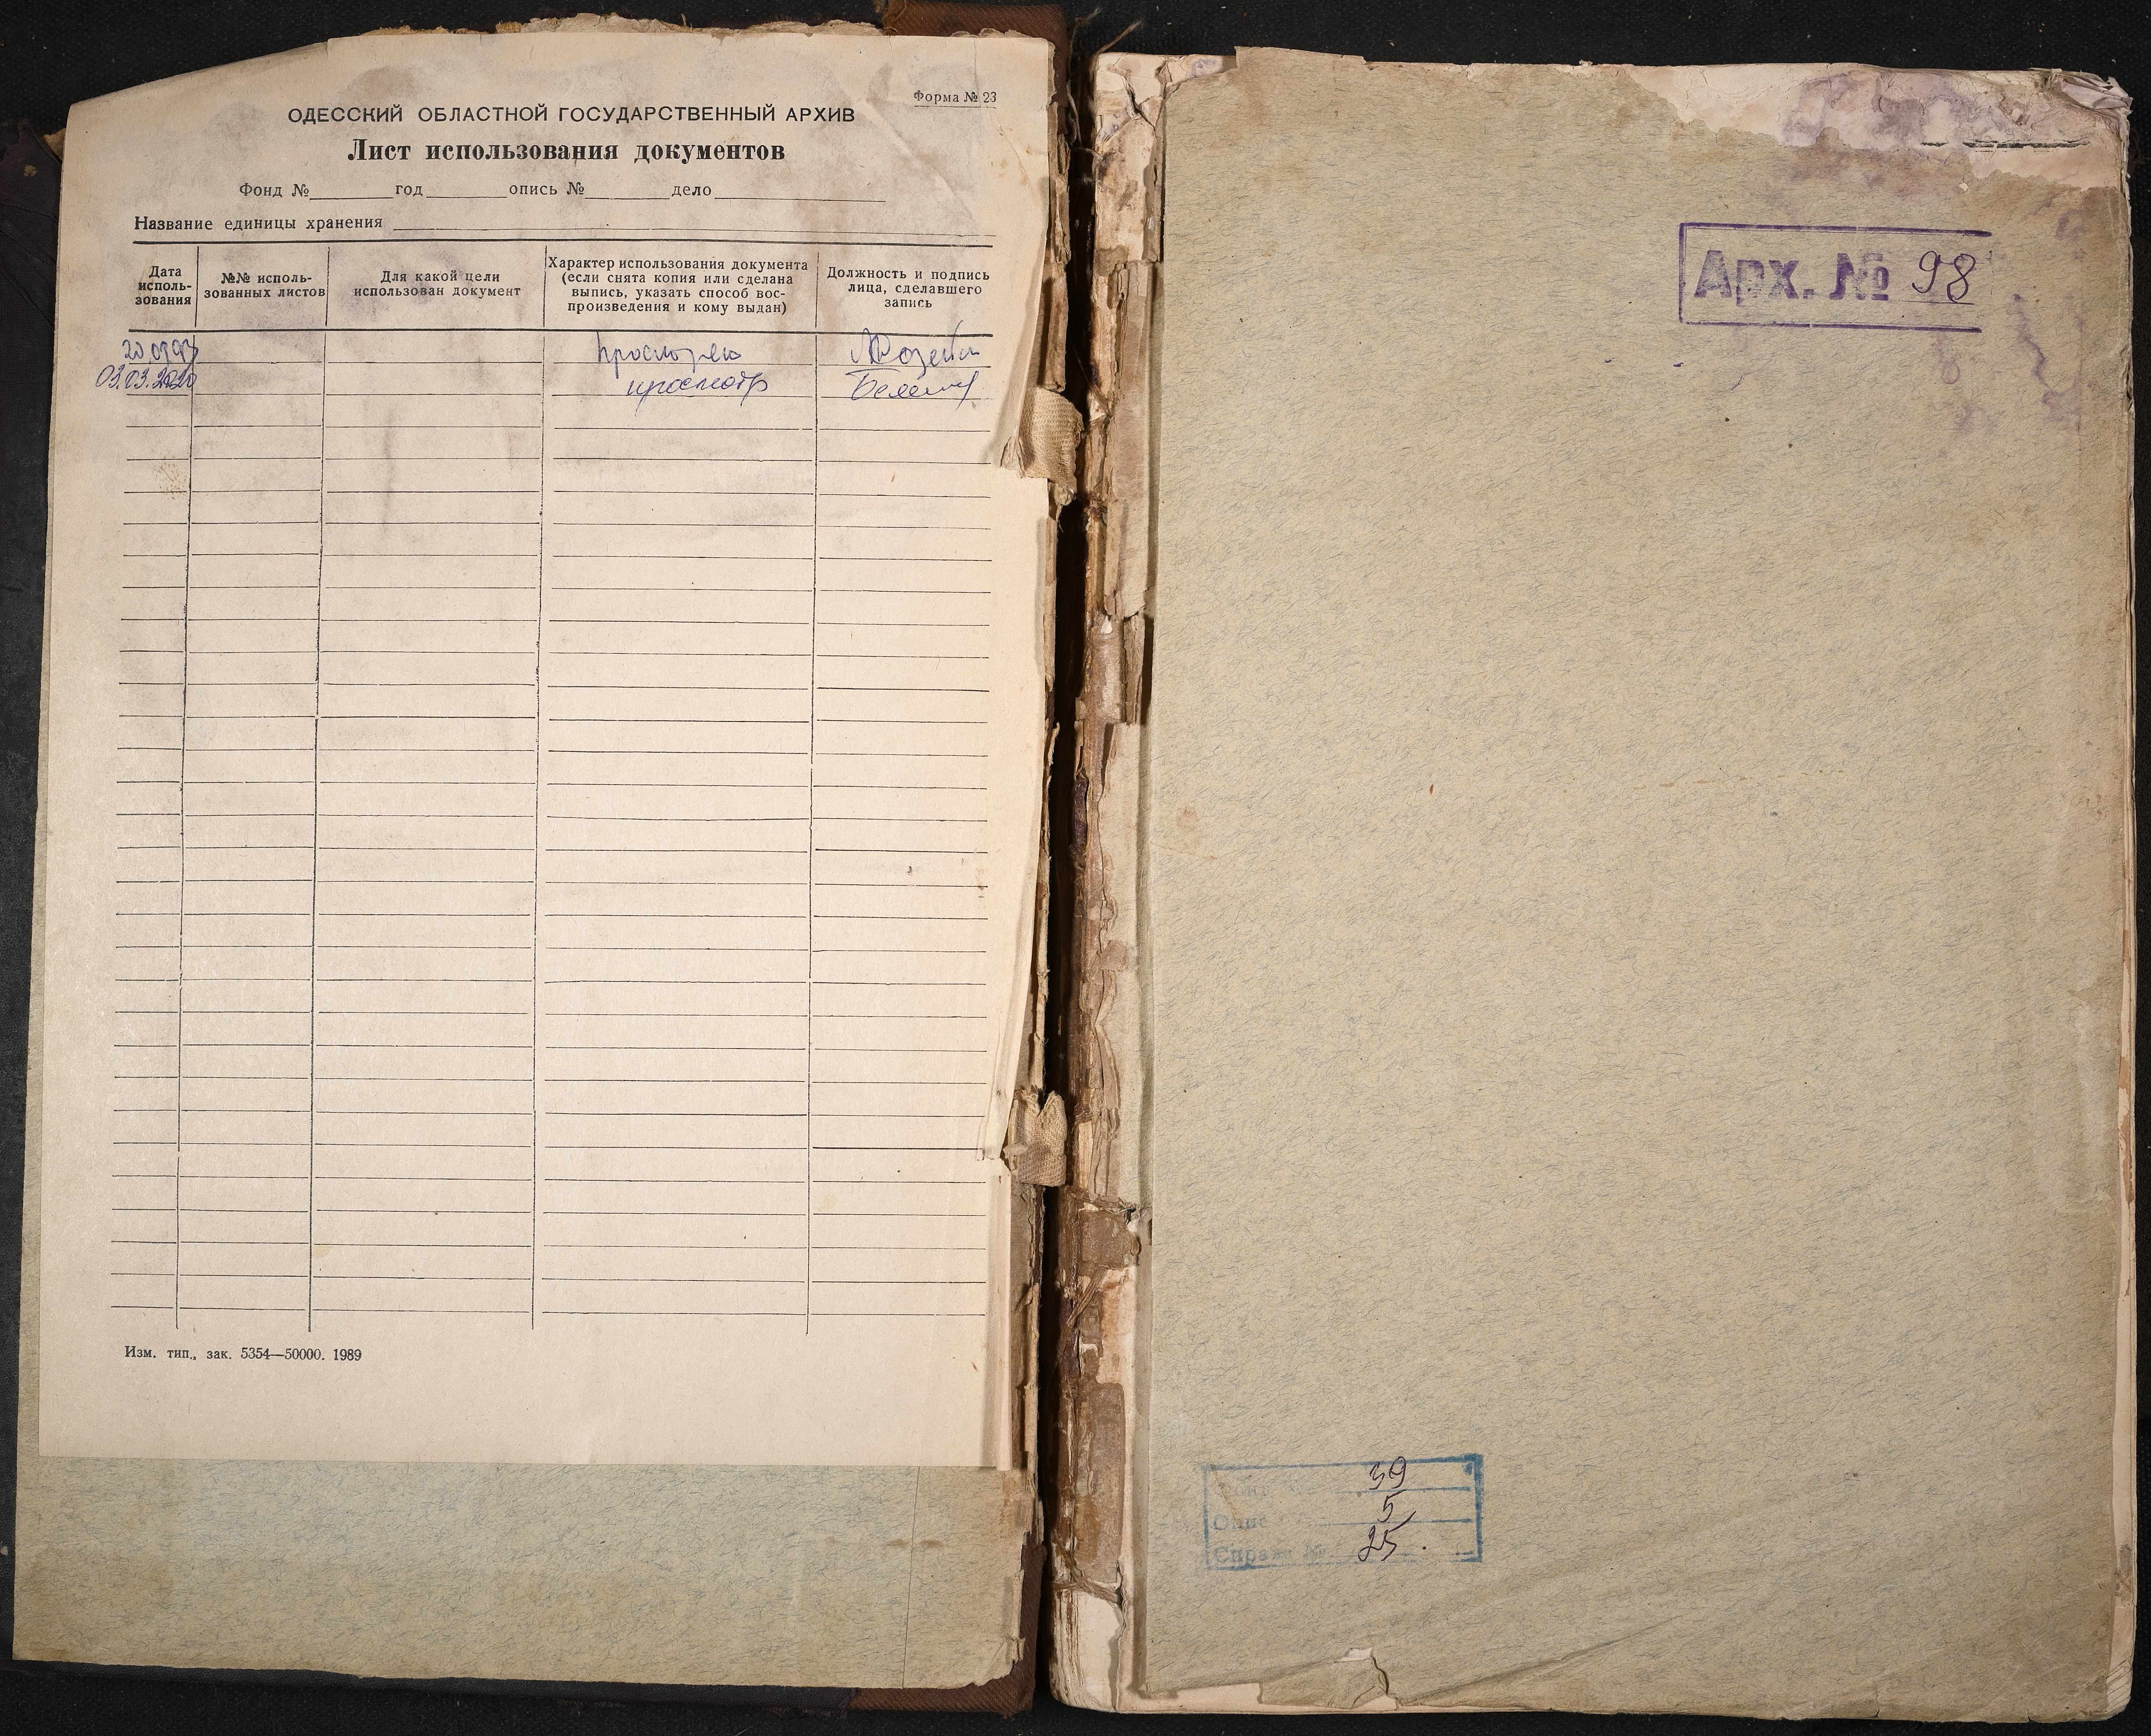 Форма № 23
ОДЕССКИЙ ОБЛАСТНОЙ ГОСУДАРСТВЕННЫЙ АРХИВ
Лист использования документов
Фонд № год опись № дело
Название единицы хранения
Дата исполь-зования
№№ исполь-зованных листов
Для какой цели использован документ
Характер использования документа (если снята копия или сделана выпись, указать способ вос-произведения и кому выдан)
Должность и подпись лица, сделавшего запись
03.03.2020 просмотр
Изм. тип., зак. 5354—50000. 1989
Арх. № 98
39
5
Справа № 25